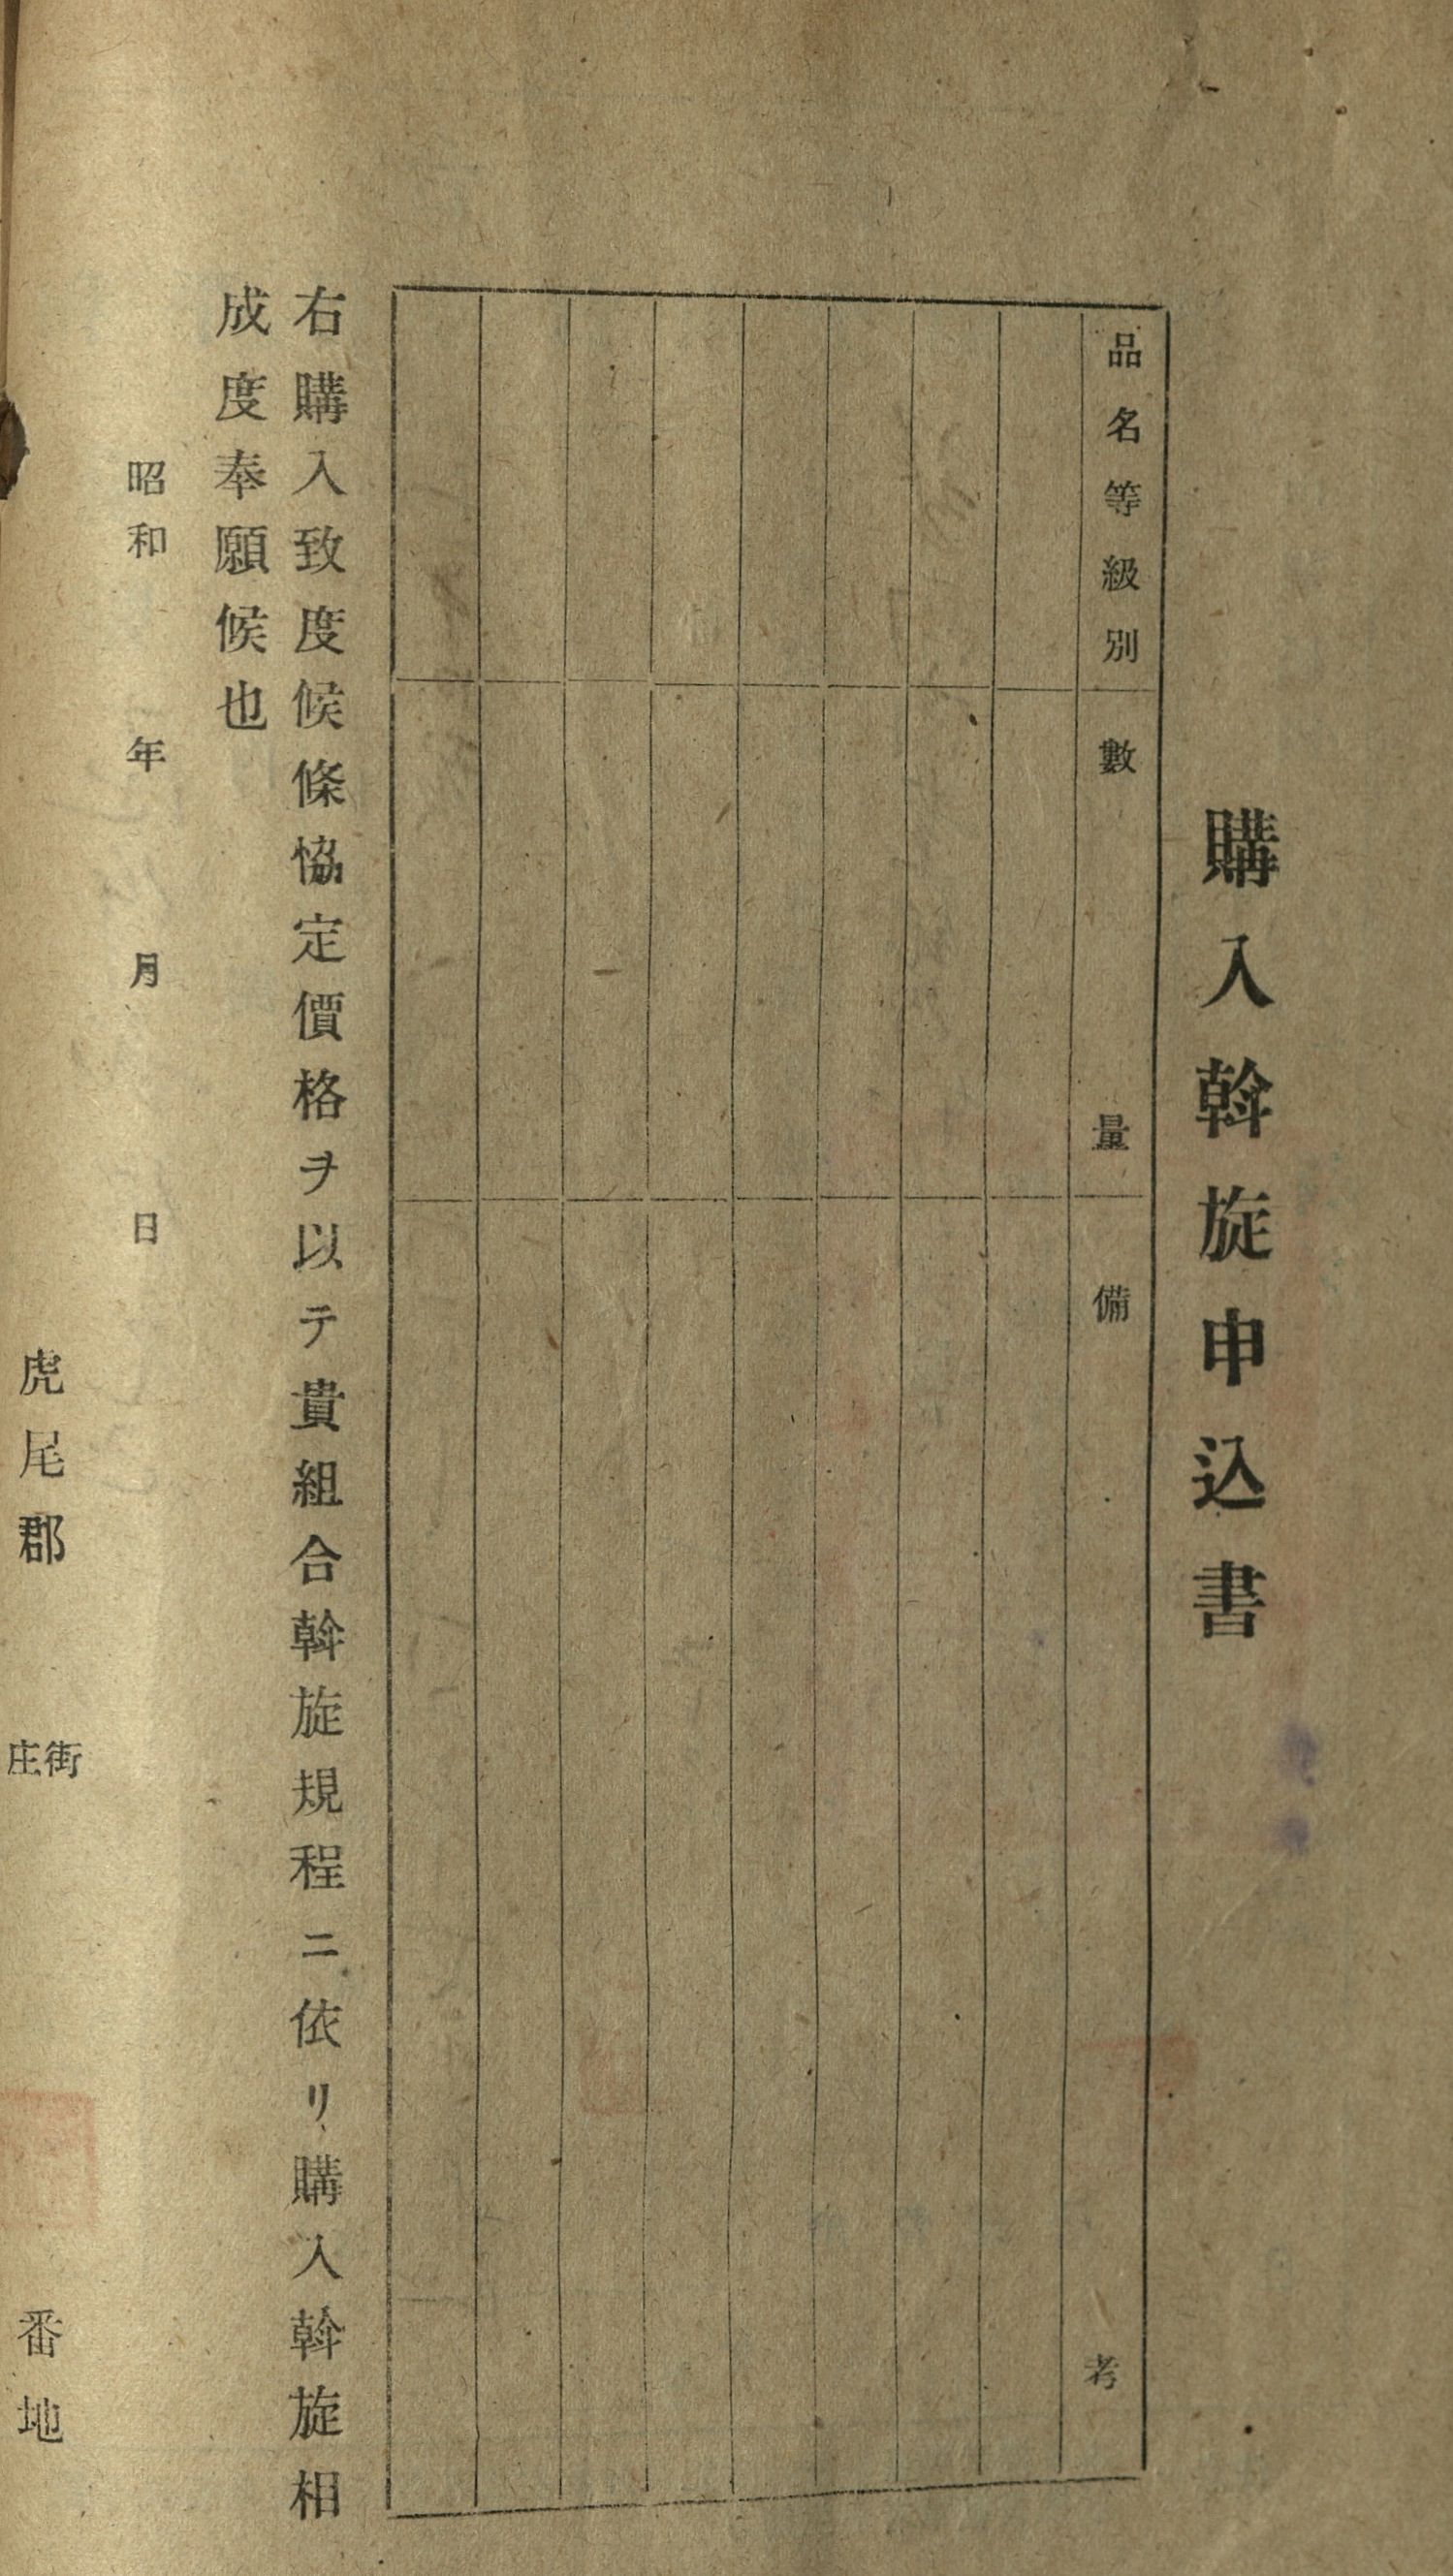 購入斡旋申込書
品名等級別
數量
備考
右購入致度候條恊定價格ヲ以テ貴組合斡旋規程ニ依リ購入斡旋相
成度奉願候也
昭和 年 月 日
虎尾郡 街庄 番地